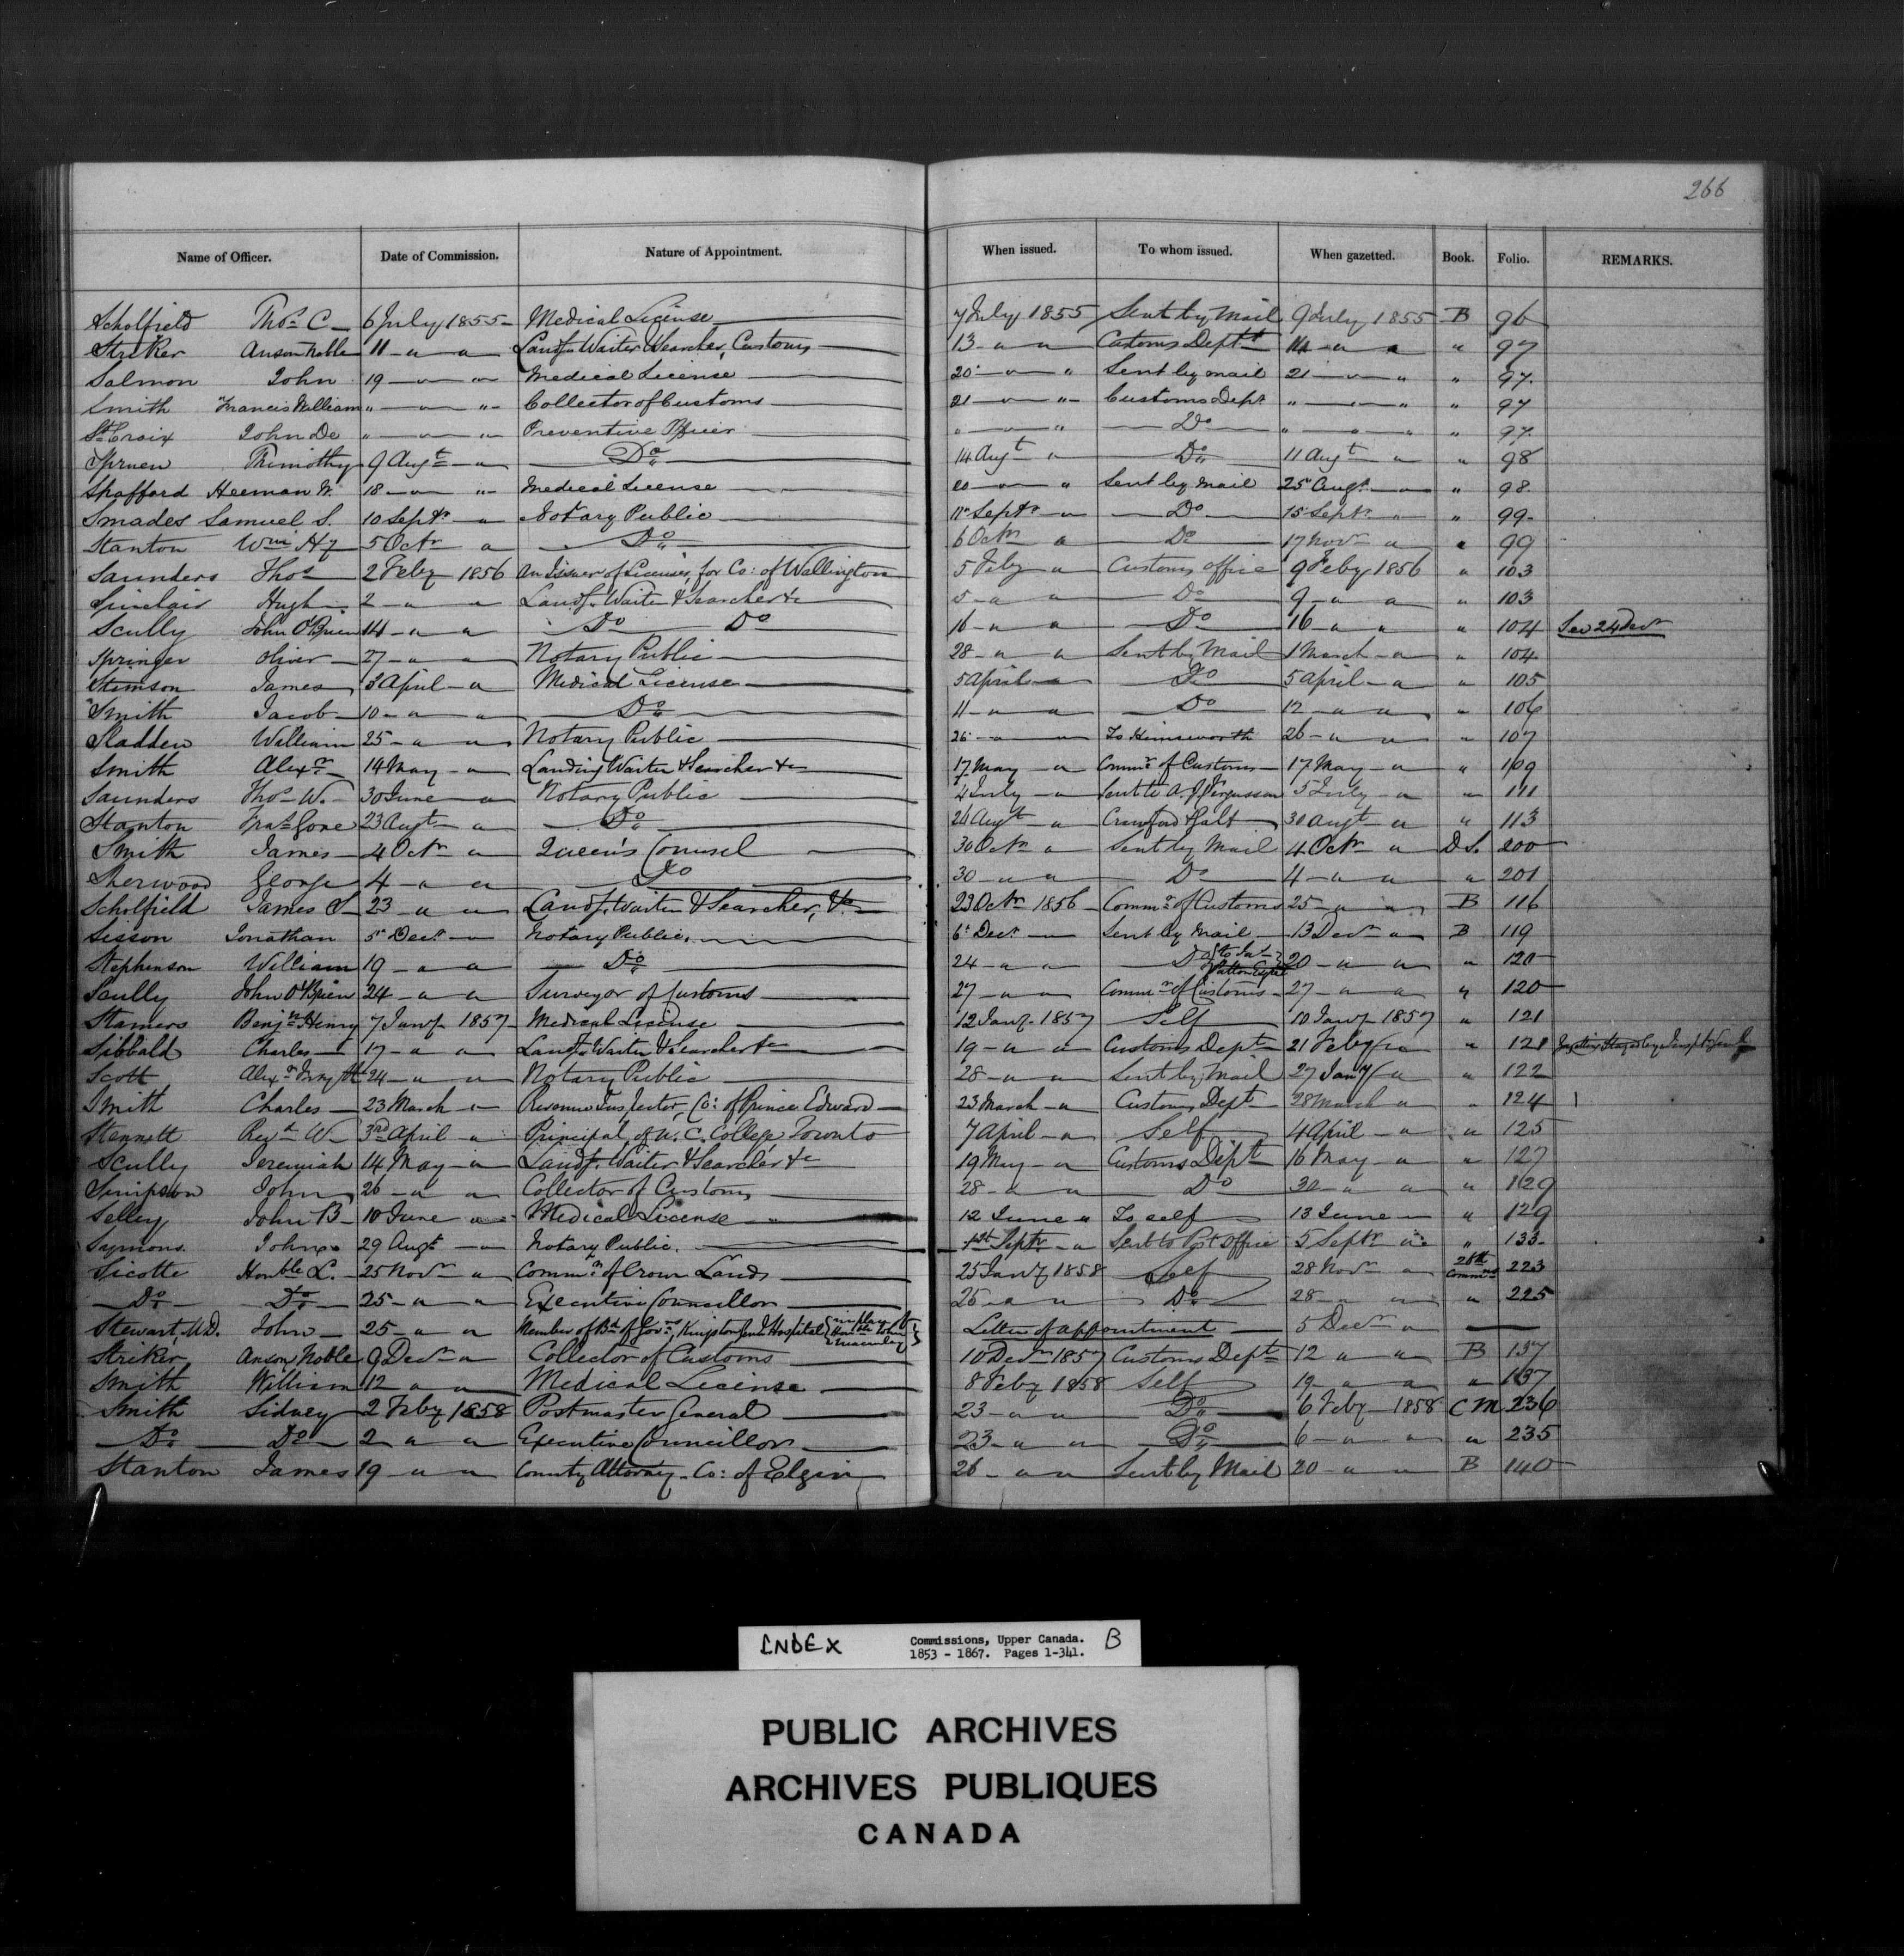 266
Name of Officer. Date of Commission. Nature of Appointment. When issued. To whom issued. When gazetted. Book. Folio. REMARKS.
Scholfield Thos. C — 6 July 1855 — Medical License — 7 July 1855 Sent by Mail 9 July 1855 B 96
Striker Anson Noble 11 — " " Landg. Waiter & Searcher, Customs — 13 — " " Customs Deptt 14 — " " " 97
Salmon John 19 — " " Medical License — 20 — " " Sent by mail 21 — " " " 97.
Smith Francis William " — " " Collector of Customs — 21 — " " Customs Dept. " — " " " 97
St. Croix John De " — " " Preventive Officer " — " " Do " — " " " 97.
Spruen Thimothy 9 Augt — " Do 14 Augt " Do 11 Augt " " 98
Shafford Heeman W. 18 — " " Medical License 20 — " " Sent by mail 25 Augt — " " 98.
Smades Samuel S. 10 Septr — " Notary Public — 11 Septr — " Do 15 Septr " " 99.
Stanton Wm Hy 5 Octr " Do 6 Octr " Do 17 Novr " " 99
Saunders Thos 2 Feby 1856 An Issuer of Licenses, for Co: of Wellington 5 Feby " Customs office 9 Feby 1856 " 103
Sinclair Hugh. 2 — " " Landg. Waiter & Searcher &c 5 — " " Do 9 — " " " 103
Scully John O'Brien 14 — " " Do Do 16 — " " Do 16 — " " " 104 See 24 Decr
Springer Oliver — 27 — " " Notary Public — 28 — " " Sent by Mail 1 March — " " 104
Stimson James 3 April — " Medical License — 5 April — " Do 5 April — " " 105
Smith Jacob — 10 — " " Do 11 — " " Do 12 — " " " 106
Sladden William 25 — " " Notary Public — 26 — " " To Himsworth 26 — " " " 107
Smith Alexr — 14 May — " Landing Waiter & Searcher &c 17 May — " Commr of Customs — 17 May — " " 109
Saunders Thos W. — 30 June — " Notary Public — 4 July — " Sent to A. J. Fergusson 5 July — " " 111
Stanton Gore 23 Augt — " Do 26 Augt — " Crawford & Galt 30 Augt — " " 113
Smith James — 4 Octr " Queen's Counsel — 30 Octr " Sent by Mail 4 Octr " D S. 200
Sherwood George 4 — " " Do 30 — " " Do 4 — " " " 201
Scholfield James S — 23 — " " Landg. Waiter & Searcher, &c — 23 Octr 1856 — Commr of Customs 25 — " " B 116
Sisson Jonathan 5 Decr — " Notary Public. 6 Decr — " Sent by Mail — 13 Decr " B 119
Stephenson William 19 — " " Do 24 — " " Do 20 — " " " 120
Scully John O'Brien 24 — " " Surveyor of Customs — 27 — " " Commr of Customs — 27 — " " " 120
Stamers Benjn Henry 7 Jany. 1857 — Medical License — 12 Jany. 1857 Self 10 Jany 1857 " 121
Sibbald Charles — 17 — " " Landg. Waiter & Searcher &c 19 — " " Customs Dept — 21 Feby " " 121
Scott Alexr 24 — " " Notary Public — 28 — " " Sent by Mail 27 Jany " " 122
Smith Charles — 23 March — " Revenue Inspector, Co: of Prince Edward — 23 March — " Customs Dept — 28 March " " 124
Stennett Revd W — 3rd April — " Principal, of U. C. College, Toronto 7 April — " Self 4 April — " " 125
Scully Jeremiah 14 May — " Landg. Waiter & Searcher &c 19 May — " Customs Dept 16 May — " " 127
Simpson John 26 — " " Collector of Customs — 28 — " " Do 30 — " " " 129
Selley John B — 10 June " Medical License — " 12 June " To self 13 June — " 129
Symons. John 29 Augt — " Notary Public. 1st Septr — " Sent to Post Office 5 Septr " " 133.
Sicotte Honble L. — 25 Novr — " Commr of Crown Lands 25 Jany 1858 Self 28 Novr — " 28th Commns 223
Do Do 25 — " " Executive Councillor — 25 — " " Do 28 — " " " 225
Stewart, M.D. John — 25 — " " Member of Bd of Govrs, Kingston Genl Hospital { in place of Honble John Macaulay } Letter of appointment — 5 Decr " —
Striker Anson Noble 9 Decr " Collector of Customs — 10 Decr 1857 Customs Dept 12 " " B 137
Smith William 12 " " Medical License — 8 Feby 1858 Self 19 — " " " 137
Smith Sidney 2 Feby 1858 Postmaster General — 23 — " " Do 6 Feby — 1858 C M 236
Do Do 2 " " Executive Councillor — 23 — " " Do 6 — " " " 235
Stanton James 19 — " " County Attorney — Co: of Elgin 26 — " " Sent by Mail 20 — " " B 140
INDEX Commissions, Upper Canada. B
1853 - 1867. Pages 1-341.
PUBLIC ARCHIVES
ARCHIVES PUBLIQUES
CANADA